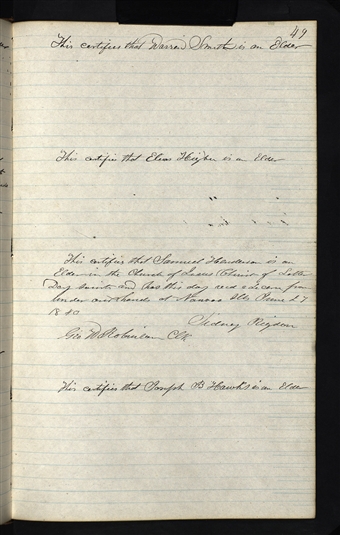 49
This certifies that Warren Smith is an Elder
This certifies that Elias Higbee is an Elder
This certifies that Samuel Henderson is an
Elder in the Church of Jesus Christ of Latter
Day saints and has this day recd a License from
under our hands at Nauvoo Ills June 27
1840
Sidney Rigdon
Geo W Robinson Clk
This certifies that Joseph B Hawks is an Elder